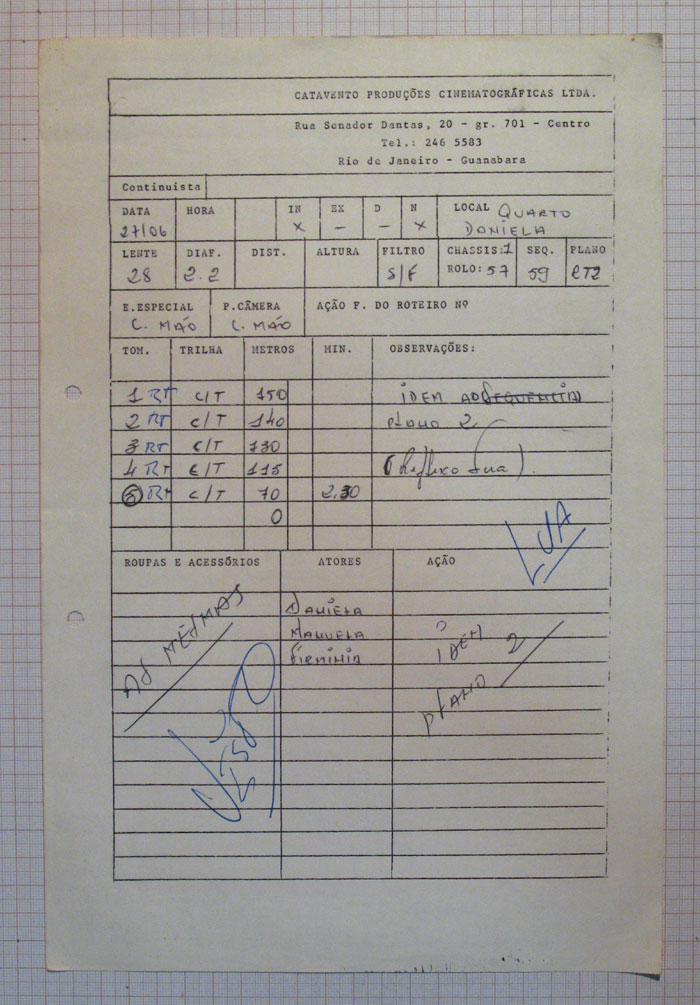 CATAVENTO PRODUÇÕES CINEMATOGRÁFICAS LTDA.
Rua Senador Dantas, 20 - gr. 701 - Centro
Tel.: 246 5583
Rio de Janeiro - Guanabara
Continuista
DATA HORA IN EX D N LOCAL QUARTO
27/06 X - - X DANIELA
LENTE DIAF. DIST. ALTURA FILTRO CHASSIS:1 SEQ. PLANO
28 2.2 S/F ROLO: 57 59 RT2
E.ESPECIAL P.CÂMERA AÇÃO F. DO ROTEIRO Nº
C. MÃO C. MÃO
TOM. TRILHA METROS MIN. OBSERVAÇÕES:
1 RT C/T 150 IDEM AO SEQUENCIA
2 RT C/T 140 PLANO 2
3 RT C/T 130
4 RT C/T 115 (Reflexo lua).
5 RT C/T 70 2.30
0
LUA
ROUPAS E ACESSÓRIOS ATORES AÇÃO
AS MESMAS
DANIELA
MANUELA
IDEM
PLANO 2